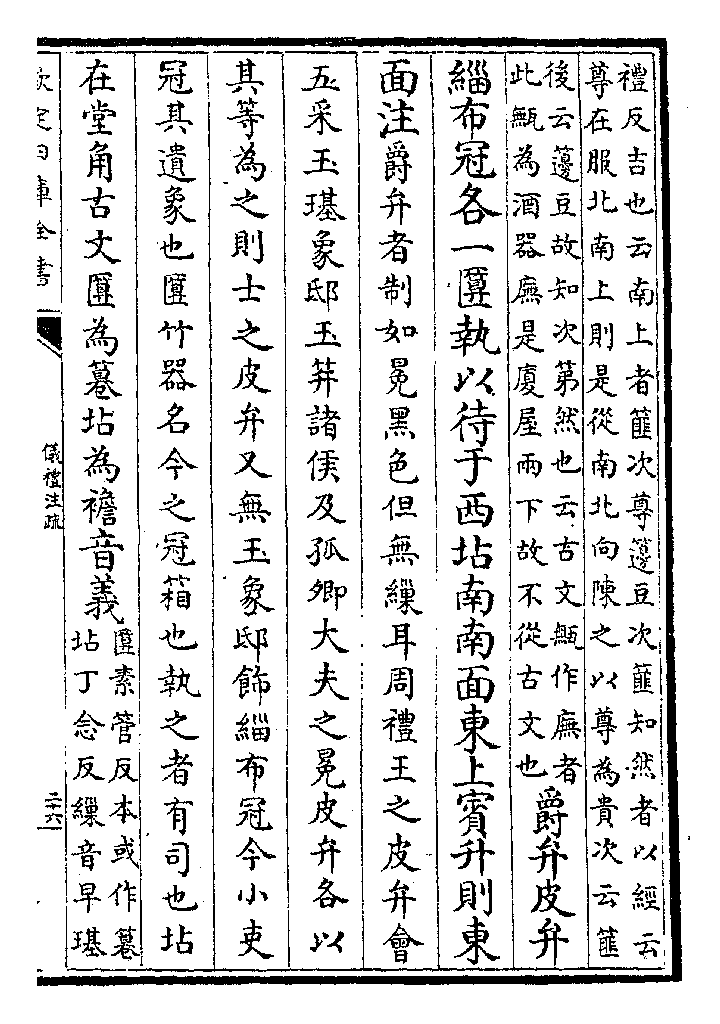 禮反吉也云南上者篚次尊籩豆次篚知然者以經云
尊在服北南上則是從南北向陳之以尊為貴次云篚
後云籩豆故知次第然也云古文甒作廡者
此甒為酒器廡是廈屋兩下故不從古文也
爵弁皮弁
緇布冠各一匴執以待于西坫南南面東上賓升則東
面注爵弁者制如冕黑色但無繅耳周禮王之皮弁會
五采玉璂象邸玉笄諸侯及孤卿大夫之冕皮弁各以
其等為之則士之皮弁又無玉象邸飾緇布冠今小吏
冠其遺象也匴竹器名今之冠箱也執之者有司也坫
在堂角古文匴為篹坫為襜音義
匴素管反本或作篹
坫丁念反繅音早璂
欽定四庫全書
儀禮注疏
二十六